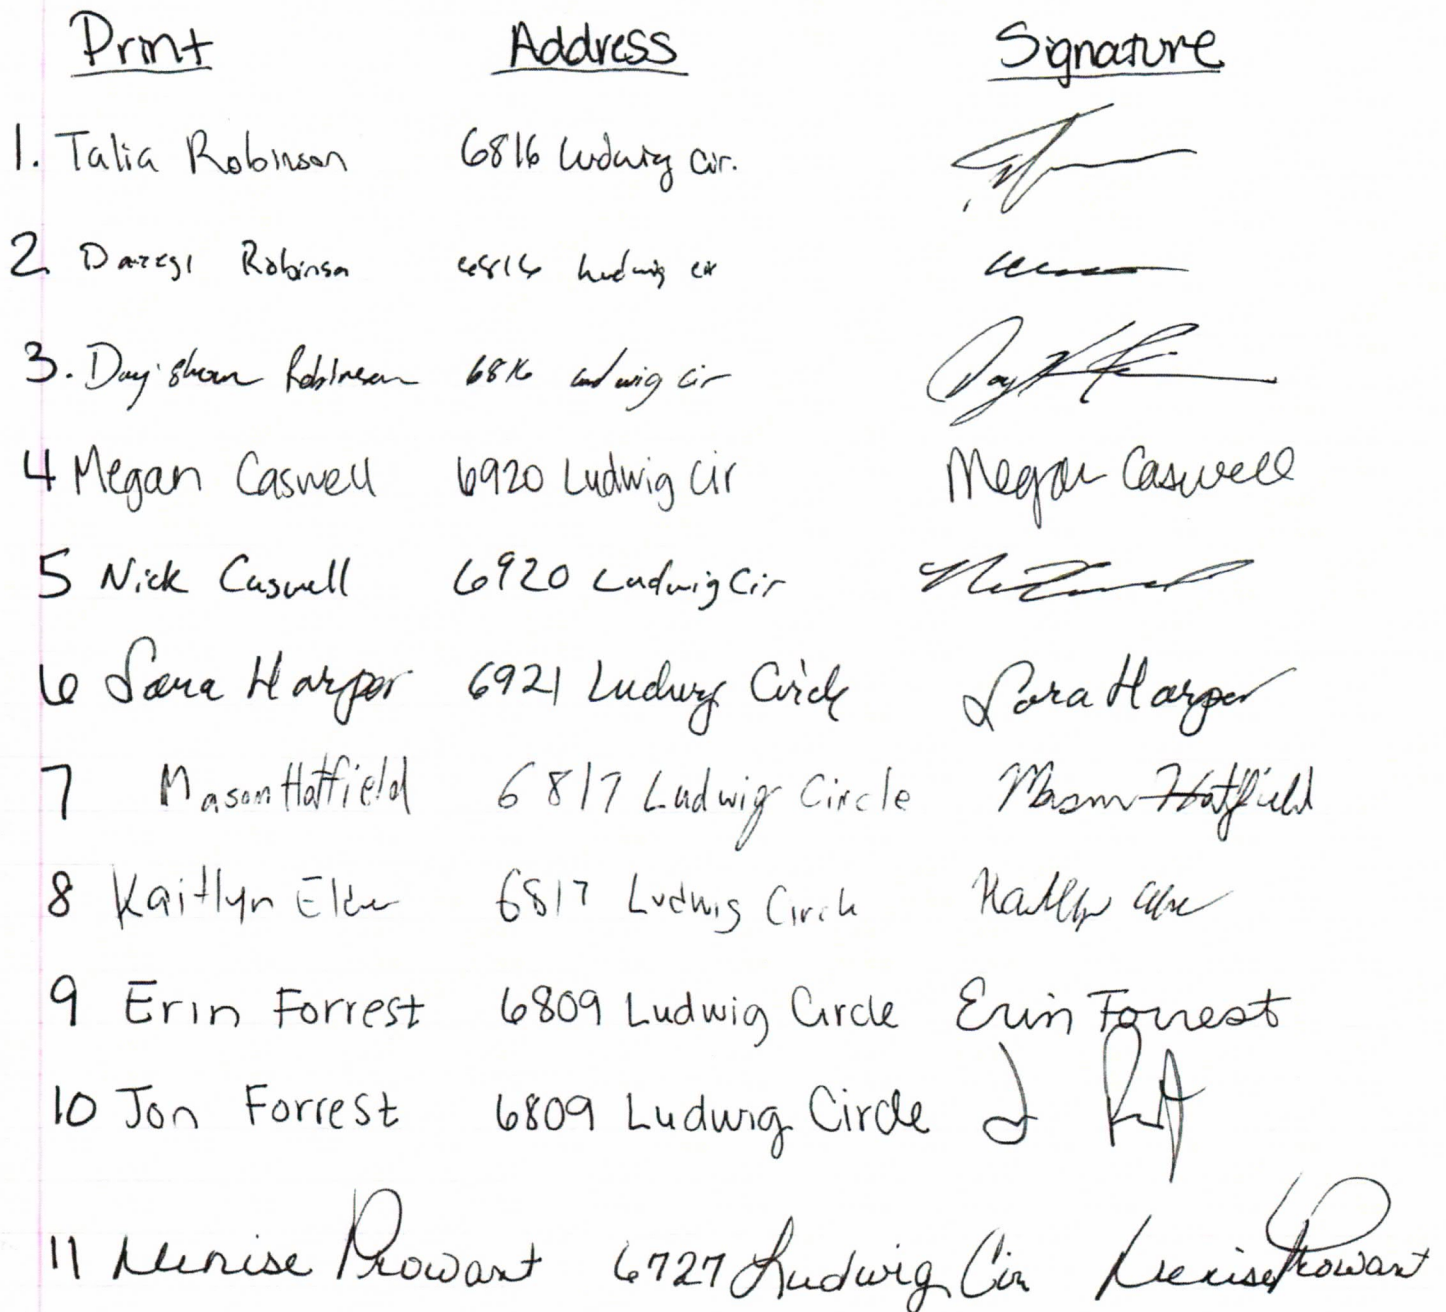 Print Address Signature
1. Talia Robinson 6816 Ludwig Cir.
2 Robinson 6816 Ludwig cir
3. Day'shawn Robinson 6816 Ludwig cir
4 Megan Caswell 6920 Ludwig Cir Megan Caswell
5 Nick Caswell 6920 Ludwig Cir
6 Sara Harper 6921 Ludwig Circle Sara Harper
7 Mason Hatfield 6817 Ludwig Circle Mason Hatfield
8 Kaitlyn 6817 Ludwig Circle Kaitlyn
9 Erin Forrest 6809 Ludwig Circle Erin Forrest
10 Jon Forrest 6809 Ludwig Circle J
11 Denise Prowant 6727 Ludwig Cir Denise Prowant